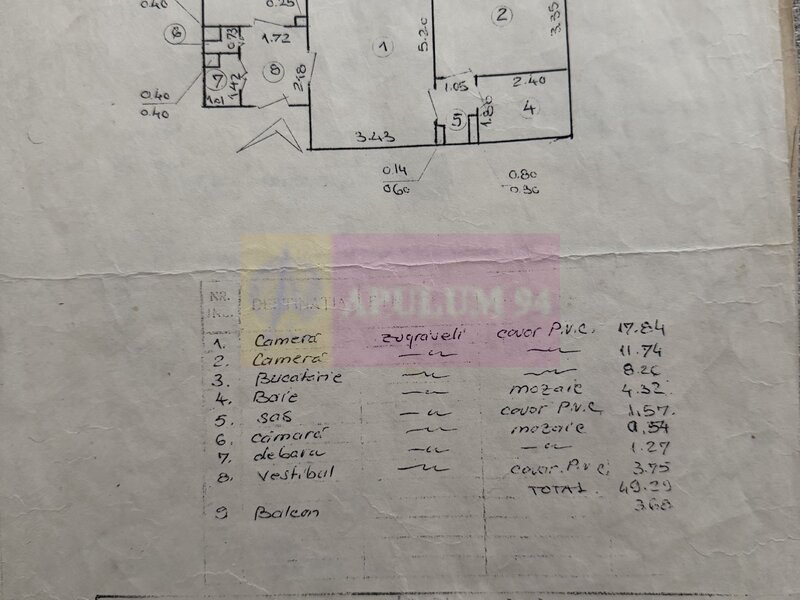 0.40
0.25
6
0.73
1.72
1
5.20
2
3.35
7
1.42
8
2.18
0.40
0.40
1.05
2.40
5
1.80
4
3.43
0.14
0.60
0.80
0.30
APULUM 94
NR.
1. Cameră zugrăveli covor P.V.C. 17.84
2. Cameră —〃— —〃— 11.74
3. Bucatărie —〃— —〃— 8.26
4. Baie —〃— mozaic 4.32
5. sas —〃— covor P.V.C. 1.57.
6. cămară —〃— mozaic 0.54
7. debara —〃— —〃— 1.27
8. vestibul —〃— covor P.V.C. 3.75
TOTAL 49.29
9 Balcon 3.68